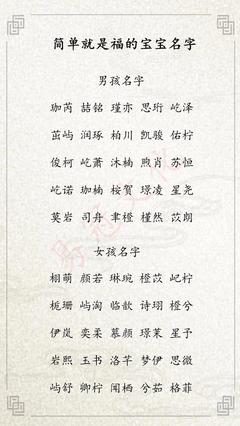 简单就是福的宝宝名字
男孩名字
珈芮 喆铭 瑾亦 思珩 屹泽
茁屿 润琢 柏川 凯骏 佑柠
俊柯 屹萧 沐楠 煦肖 苏恒
屹诺 珈楠 桉贺 璟凌 星尧
莫岩 司舟 聿橙 槿然 苡朗
女孩名字
栩萌 颜若 琳琬 橙苡 屺柠
栀珊 屿淘 临歆 诗珝 橙兮
伊岚 奕柔 慕颜 璟茉 星予
岩熙 玉书 洛芊 梦伊 思微
屿舒 卿柠 闻栖 兮茹 格菲